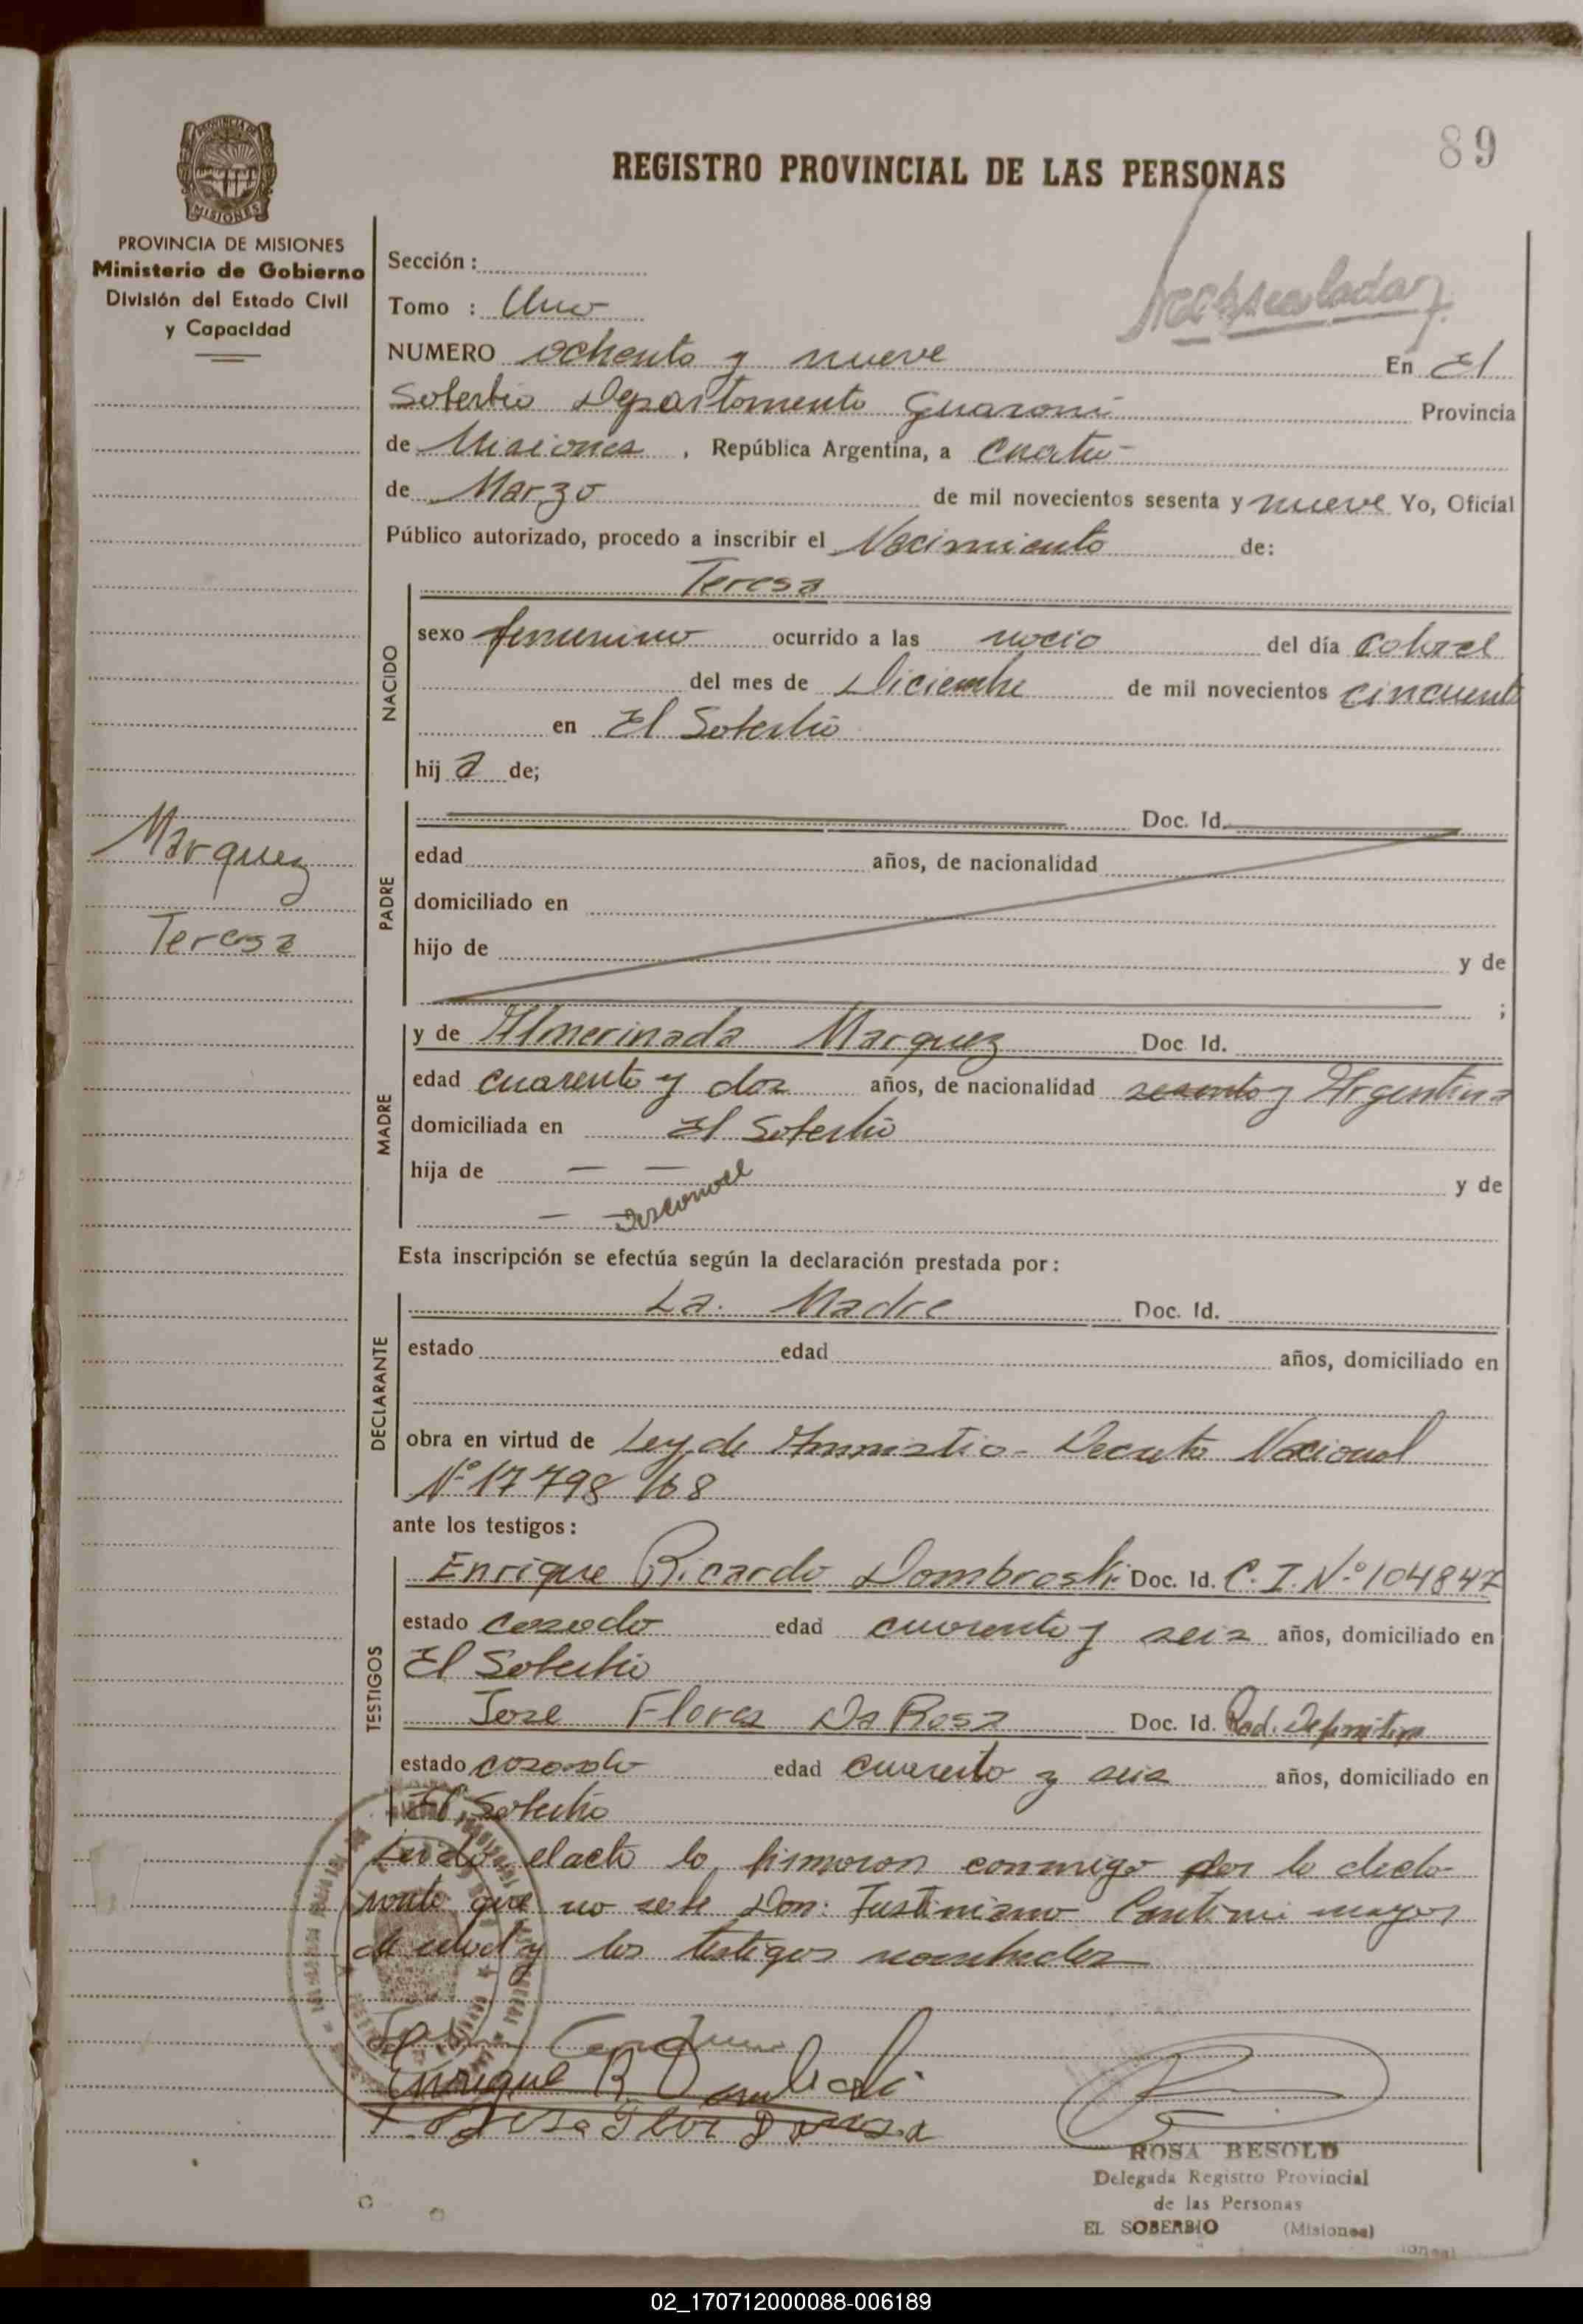 89
REGISTRO PROVINCIAL DE LAS PERSONAS
PROVINCIA DE
MISIONES
PROVINCIA DE MISIONES
Ministerio de Gobierno
División del Estado Civil
y Capacidad
Sección :
Tomo : Uno
NUMERO ochenta y nueve En El
Soberbio Departamento Guarani Provincia
de Misiones , República Argentina, a cuatro
de Marzo de mil novecientos sesenta y nueve Yo, Oficial
Público autorizado, procedo a inscribir el Nacimiento de:
Teresa
NACIDO
sexo femenino ocurrido a las del día
del mes de Diciembre de mil novecientos cincuenta
en El Soberbio
hij a de;
PADRE
Doc. Id.
edad años, de nacionalidad
domiciliado en
hijo de y de
;
Marquez
Teresa
MADRE
y de Almerinada Marquez Doc. Id.
edad cuarenta y dos años, de nacionalidad Argentina
domiciliada en El Soberbio
hija de — — y de
— — desconoce
Esta inscripción se efectúa según la declaración prestada por:
DECLARANTE
La. Madre Doc. Id.
estado edad años, domiciliado en
obra en virtud de Ley de Amnistia - Decreto Nacional
Nº 17798/68
ante los testigos:
TESTIGOS
Enrique Ricardo Dombroski Doc. Id. C. I. Nº 104847
estado casado edad cuarenta y seis años, domiciliado en
El Soberbio
Jose Flores Da Rosa Doc. Id. Rad. Definitiva
estado casado edad cuarenta y seis años, domiciliado en
El Soberbio
Leido el acta lo firmaron conmigo por la decla-
rante que no sabe Don: Justiniano mayor
de edad y los testigos nombrados
Enrique R
ROSA BESOLD
Delegada Registro Provincial
de las Personas
EL SOBERBIO (Misiones)
02_170712000088-006189